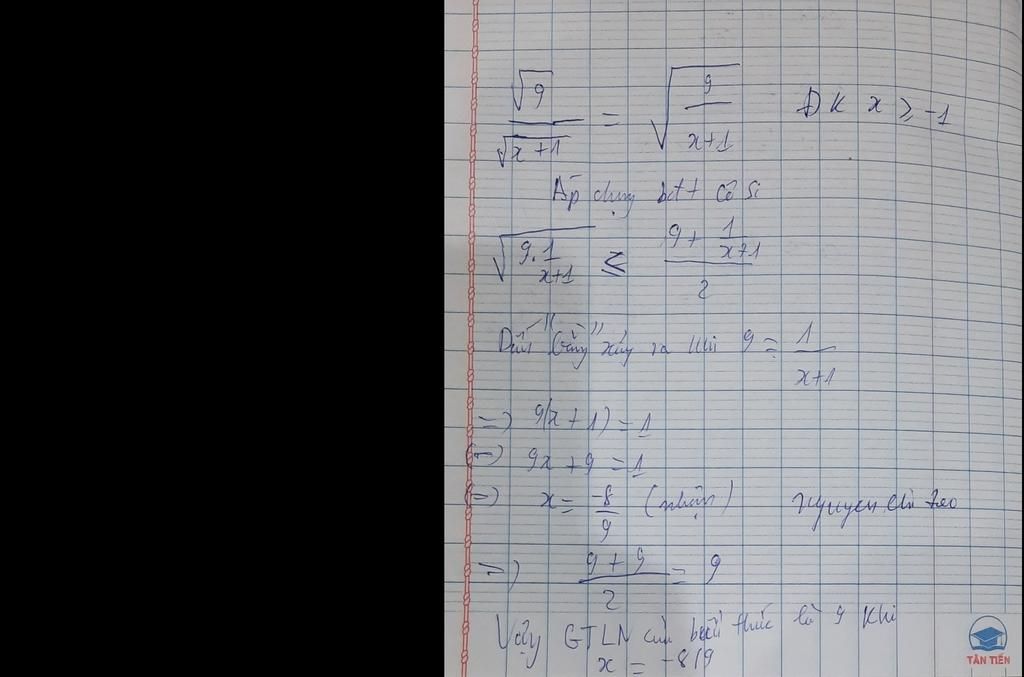 √9 / √(x+1) = √(9/(x+1)) ĐK x ≥ -1
Áp dụng bđt Cô Si
√(9.1/(x+1)) ≤ (9 + 1/(x+1)) / 2
Dấu "bằng" xảy ra khi 9 = 1/(x+1)
=> 9(x+1) = 1
(=) 9x + 9 = 1
(=) x = -8/9 (nhận) Nguyen Chi
=> (9 + 9)/2 = 9
Vậy GTLN của biểu thức là 9 khi
x = -8/9
TÂN TIẾN